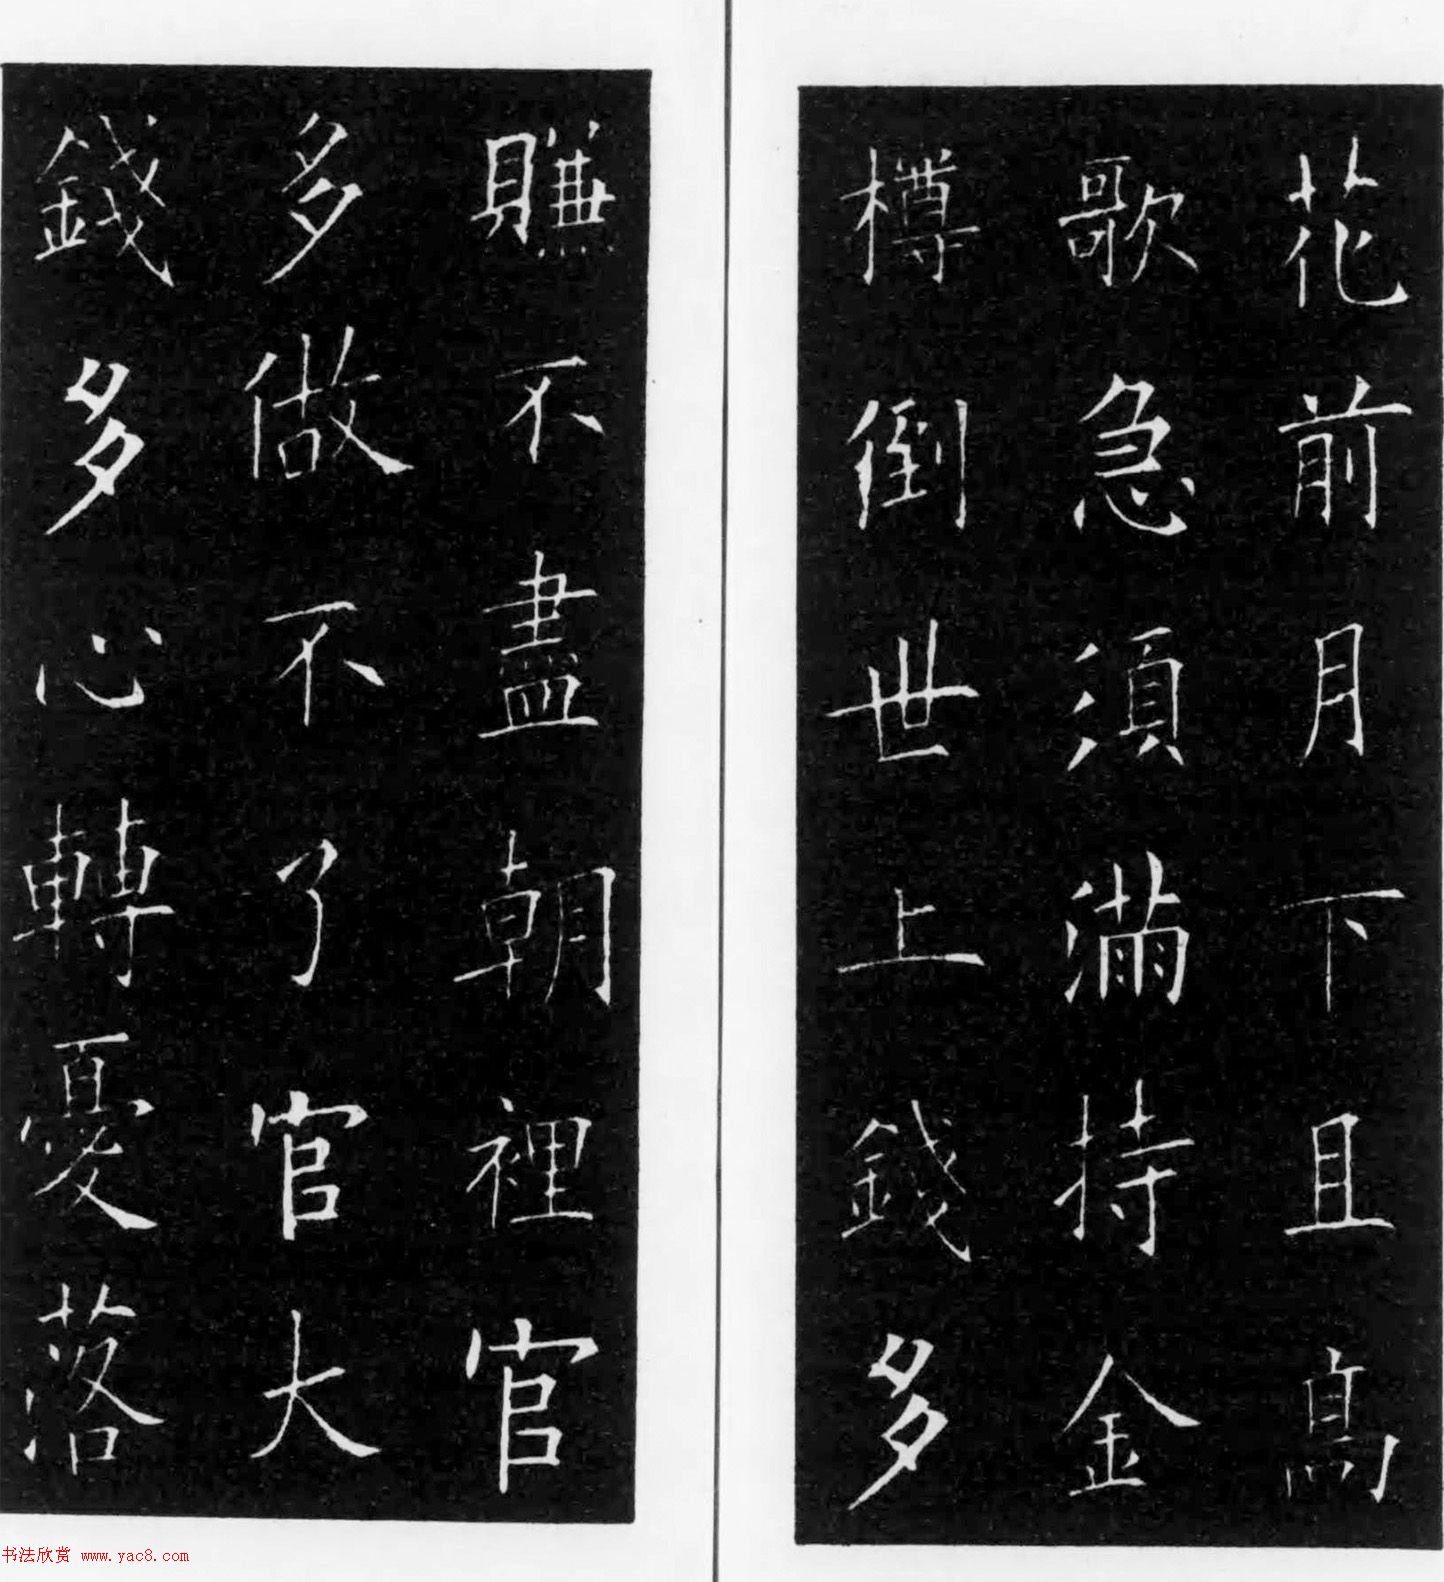 花前月下且高
歌急須滿持金
樽倒世上錢多
賺不盡朝裡官
多做不了官大
錢多心轉憂落
书法欣赏 www.yac8.com